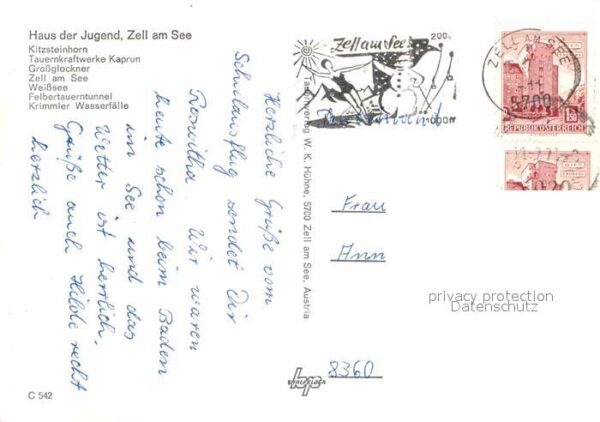 Haus der Jugend, Zell am See
Kitzsteinhorn
Tauernkraftwerke Kaprun
Großglockner
Zell am See
Weißsee
Felbertauerntunnel
Krimmler Wasserfälle
Herzliche Grüße vom
Schulausflug sendet Dir
Roswitha. Wir waren
heute schon beim Baden
im See und das
Wetter ist herrlich.
Grüße auch Hilde recht
herzlich
C 542
W. K. Hühne, 5700 Zell am See, Austria
Zell am See
ZELL AM SEE
5700
REPUBLIK ÖSTERREICH
1.50
Frau
Ann
8360
privacy protection
Datenschutz